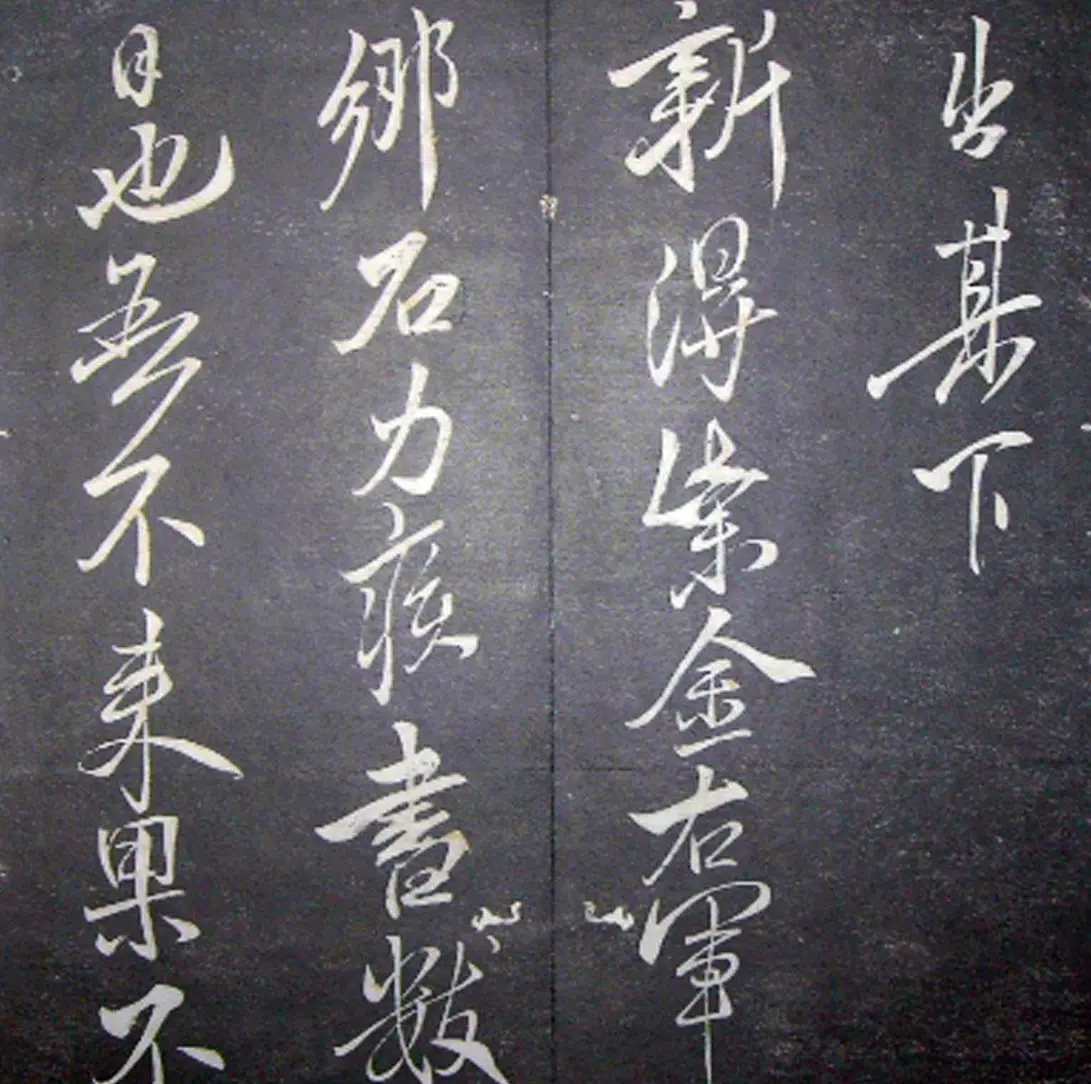 出其下
新得紫金右軍
鄉石力疾書數
日也吾不来果不